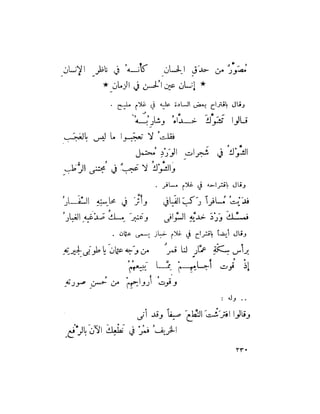 مُصوَّرٌ من حدَقِ الحسان كأَنـــهُ في ناظرِ الإنسان
* إنسان عين الحسن في الزمان *
وقال باقتراح بعض السادة عليه في غلام مليح .
قــالوا تَشَوَّكَ خــدَّاهُ وشاربُــهُ
فقلتُ لا تعجَبــوا ما ليس بالعَجَبِ
الشَّوْكُ في شجراتِ الوَرْدِ مُحتملٌ
والشَّوْكُ لا عَجبٌ في مُجتنى الرُّطبِ
وقال باقتراحه في غلام مسافر .
فدَيْتُ مُسافراً ركبَ الفَيافي وأَثَّرَ في محاسِنِهِ السِّفَــارُ
فمسَّــكَ وَرْدَ خدَّيهِ السَّوافي وعنبرَ مِسكَ صُدغَيهِ الغبارُ
وقال أيضاً باقتراح في غلام خباز يسمى عثمان .
برأسِ سِكَّةِ عمَّارٍ لنا قمرٌ من وجهِ عثمانَ يا طوبى لجيرتِهِ
إذْ قُوتُ أجسامِهِــمْ مِمَّــا يَبِيعُهُمُ
وقُوتُ أرواحِهِمْ من حُسنِ صورتِهِ
.. وله :
وقالوا افترَشْتَ النِّطعَ صيفاً وقد أتى
الخريفُ فمُرْ في نَطْعِكَ الآنَ بالرَّفعِ
٢٣٠